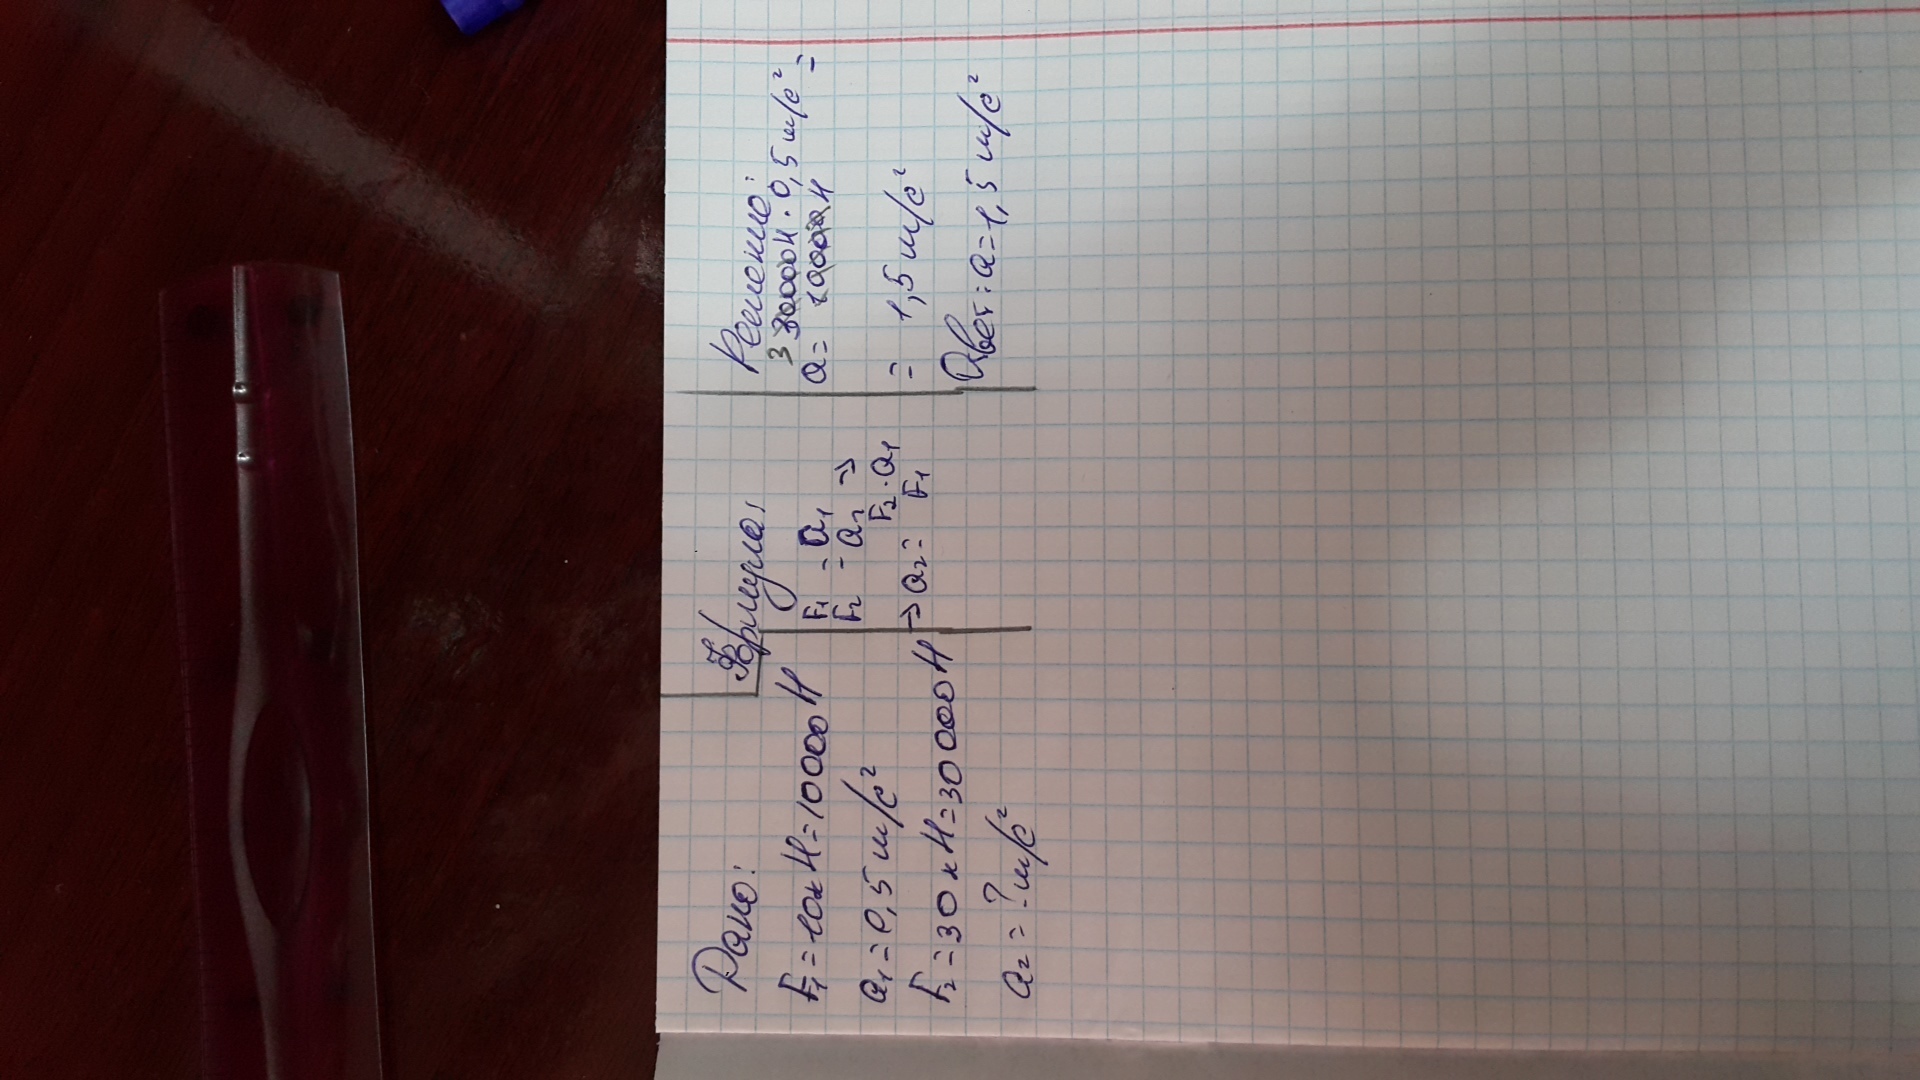 Дано:
F₁=10кН=10000Н
a₁=0,5м/с²
F₂=30кН=30000Н
a₂=?м/с²
Формула:
F₁/F₂ = a₁/a₂ →
→ a₂= F₂·a₁/F₁
Решение:
a= 30000Н·0,5м/с²/10000Н =
3
= 1,5м/с²
Ответ: a=1,5м/с²